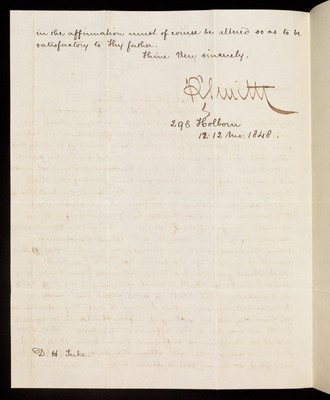 in the affirmation must of course be altered so as to be
satisfactory to thy father.
Thine very sincerely,
Smith
298 Holborn
12. 12 mo: 1848.
D. H. Tuke.